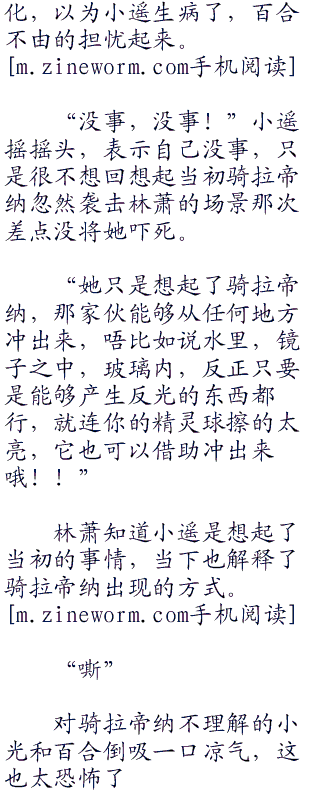 化，以为小遥生病了，百合
不由的担忧起来。
[m.zineworm.com手机阅读]
“没事，没事！”小遥
摇摇头，表示自己没事，只
是很不想回想起当初骑拉帝
纳忽然袭击林萧的场景那次
差点没将她吓死。
“她只是想起了骑拉帝
纳，那家伙能够从任何地方
冲出来，唔比如说水里，镜
子之中，玻璃内，反正只要
是能够产生反光的东西都
行，就连你的精灵球擦的太
亮，它也可以借助冲出来
哦！！”
林萧知道小遥是想起了
当初的事情，当下也解释了
骑拉帝纳出现的方式。
[m.zineworm.com手机阅读]
“嘶”
对骑拉帝纳不理解的小
光和百合倒吸一口凉气，这
也太恐怖了